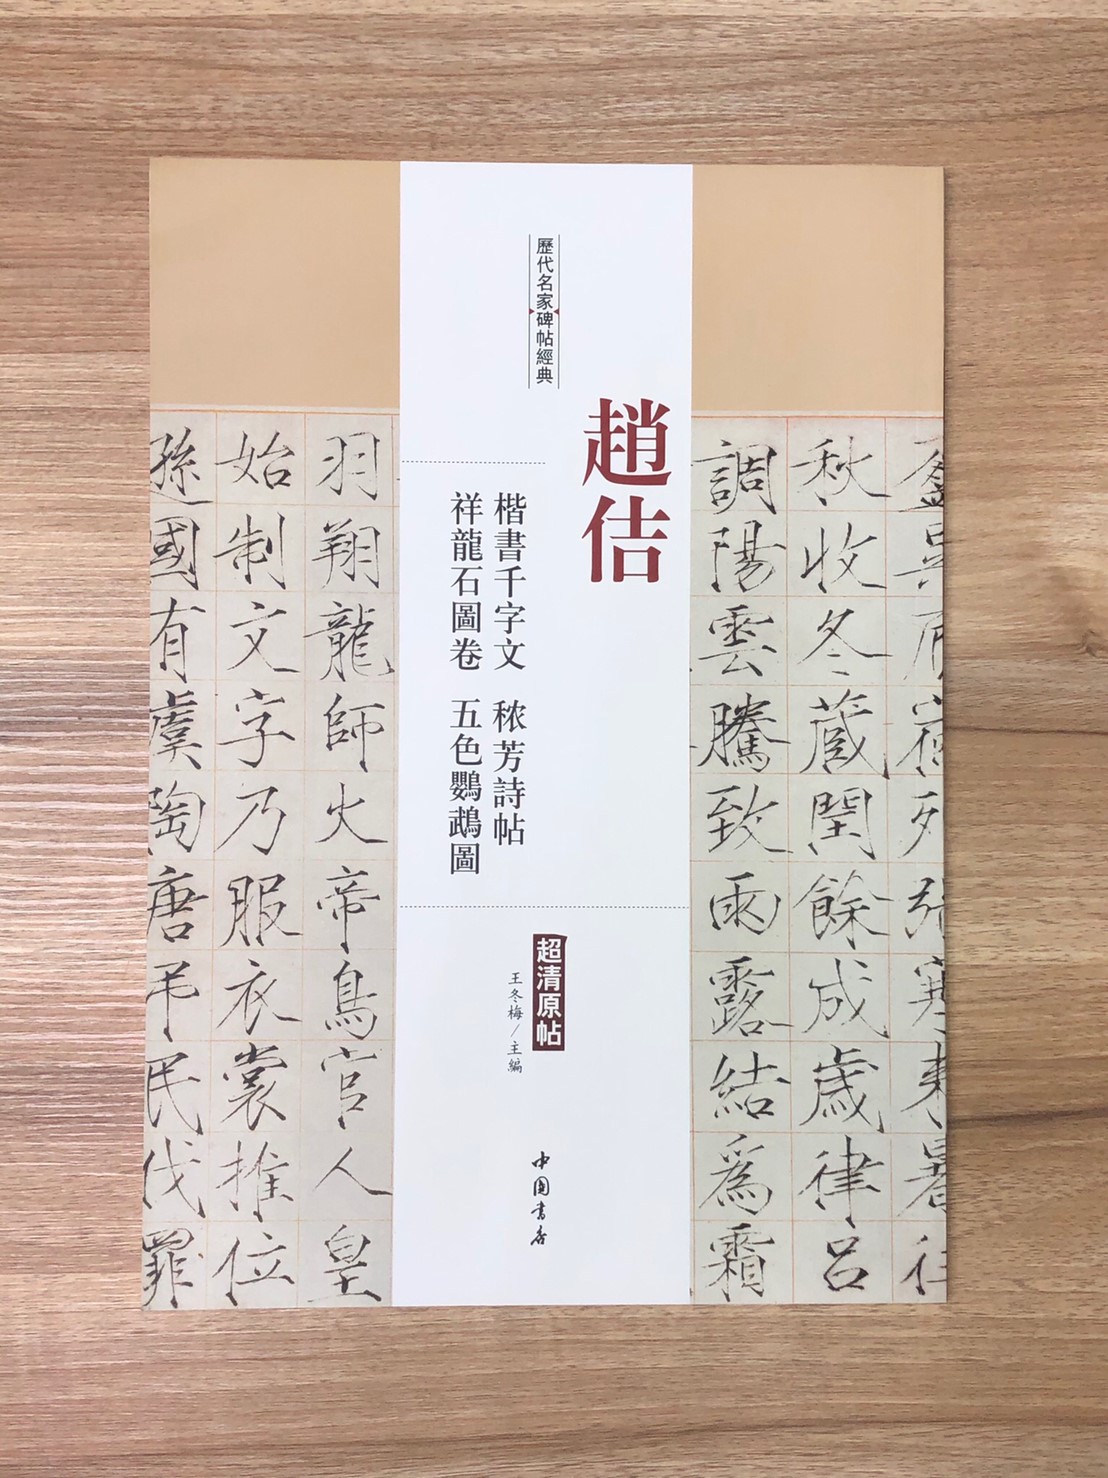 歷代名家碑帖經典
趙佶
楷書千字文 穠芳詩帖
祥龍石圖卷 五色鸚鵡圖
超清原帖
王冬梅／主編
中國書店
秋收冬藏閏餘成歲律呂
調陽雲騰致雨露結為霜
羽翔龍師火帝鳥官人皇
始制文字乃服衣裳推位
遜國有虞陶唐弔民伐罪